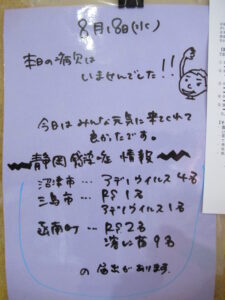 8月18日(水)
本日の病欠は
いませんでした!!
今日はみんな元気に来てくれて
良かったです。
静岡感染症情報
沼津市… アデノウイルス 4名
三島市… RS 1名
アデノウイルス1名
函南町… RS2名
溶レン菌9名
の届出があります。